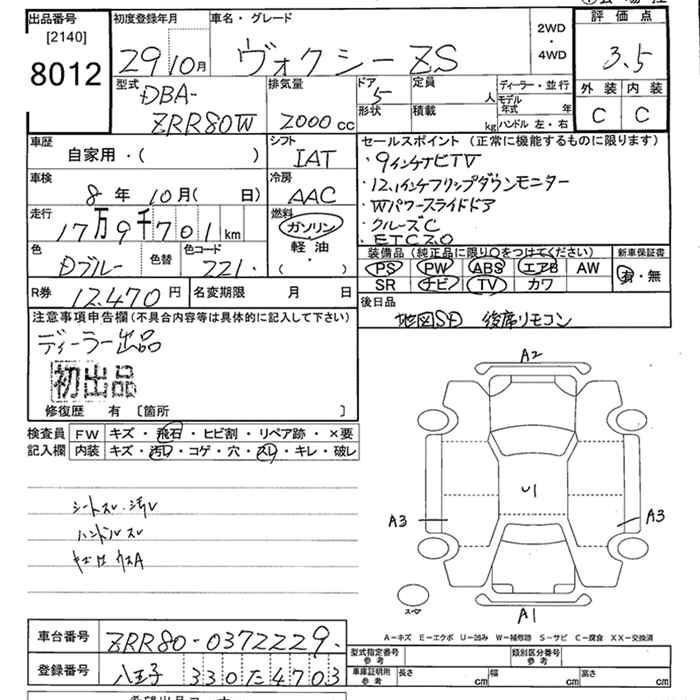 出品番号
[2140]
8012
初度登録年月
29 10月
車名・グレード
ヴォクシー ZS
2WD
・
4WD
評価点
3.5
外装 内装
C C
型式
DBA-
ZRR80W
排気量
2000cc
ドア
5
形状
定員
人
積載
kg
ディーラー・並行
モデル年式 年
ハンドル 左・右
車歴
自家用・( )
シフト
IAT
車検
8年 10月( 日)
冷房
AAC
走行
17万9千701km
燃料
ガソリン
軽油
( )
色
Dブルー
色替
色コード
221
セールスポイント(正常に機能するものに限ります)
・9インチナビTV
・12.1インチフリップダウンモニター
・Wパワースライドドア
・クルーズC
・ETC2.0
装備品(純正品に限り○をつけてください)
PS PW ABS エアB AW
SR ナビ TV カワ
新車保証書
有・無
R券 12,470円
名変期限 月 日
後日品
地図SD 後席リモコン
注意事項申告欄(不具合内容等は具体的に記入して下さい)
ディーラー出品
初出品
修復歴 有 [箇所 ]
検査員記入欄
FW キズ・飛石・ヒビ割・リペア跡・×要
内装 キズ・汚レ・コゲ・穴・スレ・キレ・破レ
シートスレ・汚レ
ハンドルスレ
A2
U1
A3
A3
A1
スペア
A−キズ E−エクボ U−凹み W−補修跡 S−サビ C−腐食 XX−交換済
車台番号 ZRR80-0372229
登録番号 八王子 330 た 4703
型式指定番号 参考
類別区分番号 参考
車庫証明用 参考
長さ cm 幅 cm 高さ cm